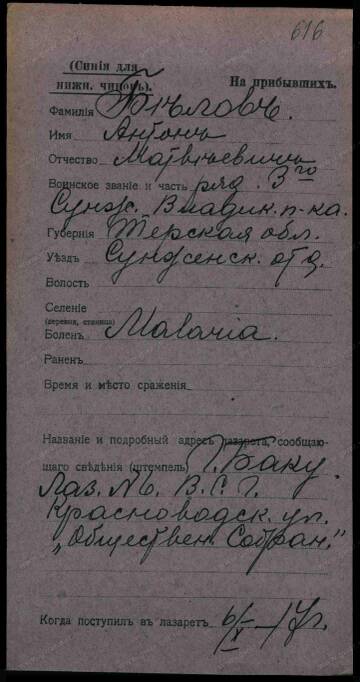 616
(Синія для
нижн. чиновъ). На прибывшихъ.
Фамилія Бѣловъ.
Имя Антонъ
Отчество Матвѣевичъ
Воинское званіе и часть ряд. 3го
Сунж. Владик. п-ка.
Губернія Терская обл.
Уѣздъ Сунженск. отд.
Волость
Селеніе
(деревня, станица)
Боленъ Malaria.
Раненъ
Время и мѣсто сраженія
Названіе и подробный адресъ лазарета, сообщаю-
щаго свѣдѣнія (штемпель) Г. Баку.
Лаз. В. С. Г.
Красноводск. ул.
„Обществен. Собран."
Когда поступилъ въ лазаретъ 6/X-17г.